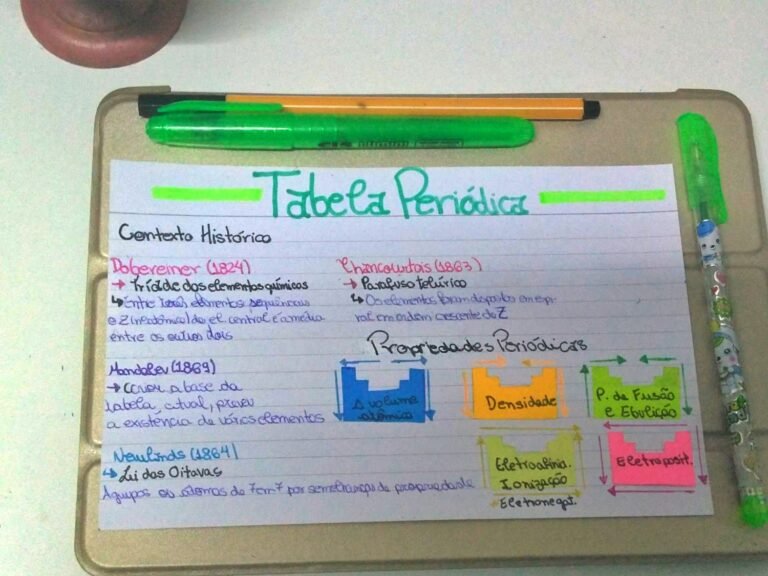 Tabela Periódica
Contexto Histórico
Dobereiner (1824)
→ Tríade dos elementos químicos
↳ Entre elementos sequênciais
o Z do el. central é a média
entre os outros dois
Chancourtois (1863)
→ Parafuso telúrico
↳ Os elementos foram dispostos em espi-
ral em ordem crescente de Z
Propriedades Periódicas
Mendelev (1869)
→ a base da
tabela atual, previu
a existência de vários elementos
Δ volume
atômico
Densidade
P. de Fusão
e Ebulição
Newlands (1864)
↳ Lei das Oitavas
Agrupou os átomos de 7 em 7 por semelhança de propriedade
Eletroafinia.
Ionização
+ Eletronegat.
Eletroposit.